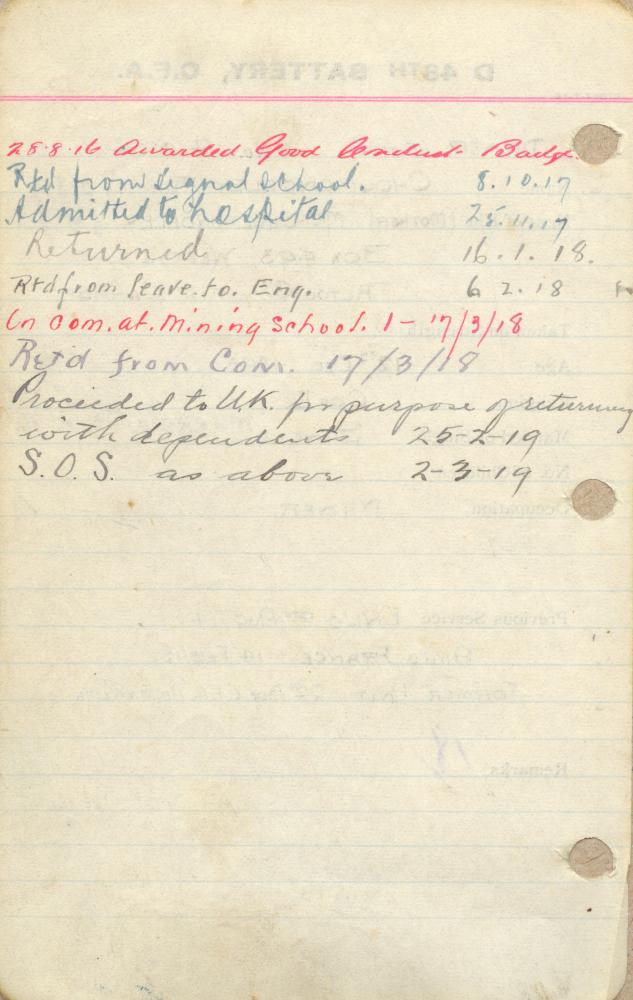 28.8.16 Awarded Good Conduct Badge.
Rtd from Signal School. 8.10.17
Admitted to hospital 25.11.17
Returned 16.1.18.
Rtd from leave. to. Eng. 6 2.18
On Com. at. Mining School. 1-17/3/18
Ret'd from Com. 17/3/18
Proceeded to U.K. for purpose of returning
with dependents 25-2-19
S.O.S. as above 2-3-19